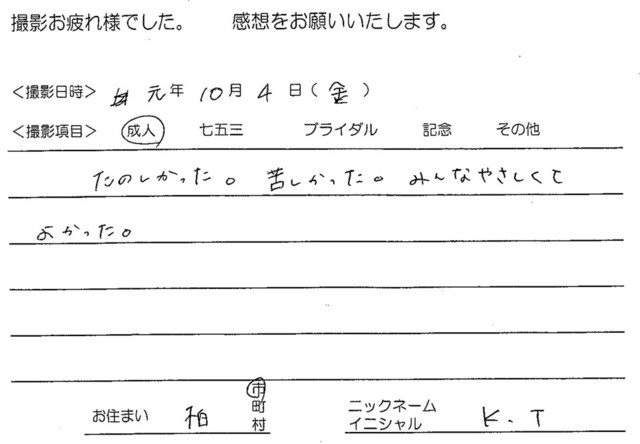 撮影お疲れ様でした。　感想をお願いいたします。
<撮影日時> 元年 10月 4日(金)
<撮影項目> 成人 七五三 ブライダル 記念 その他
たのしかった。苦しかった。みんなやさしくて
よかった。
お住まい 柏 市町村 ニックネーム イニシャル K.T